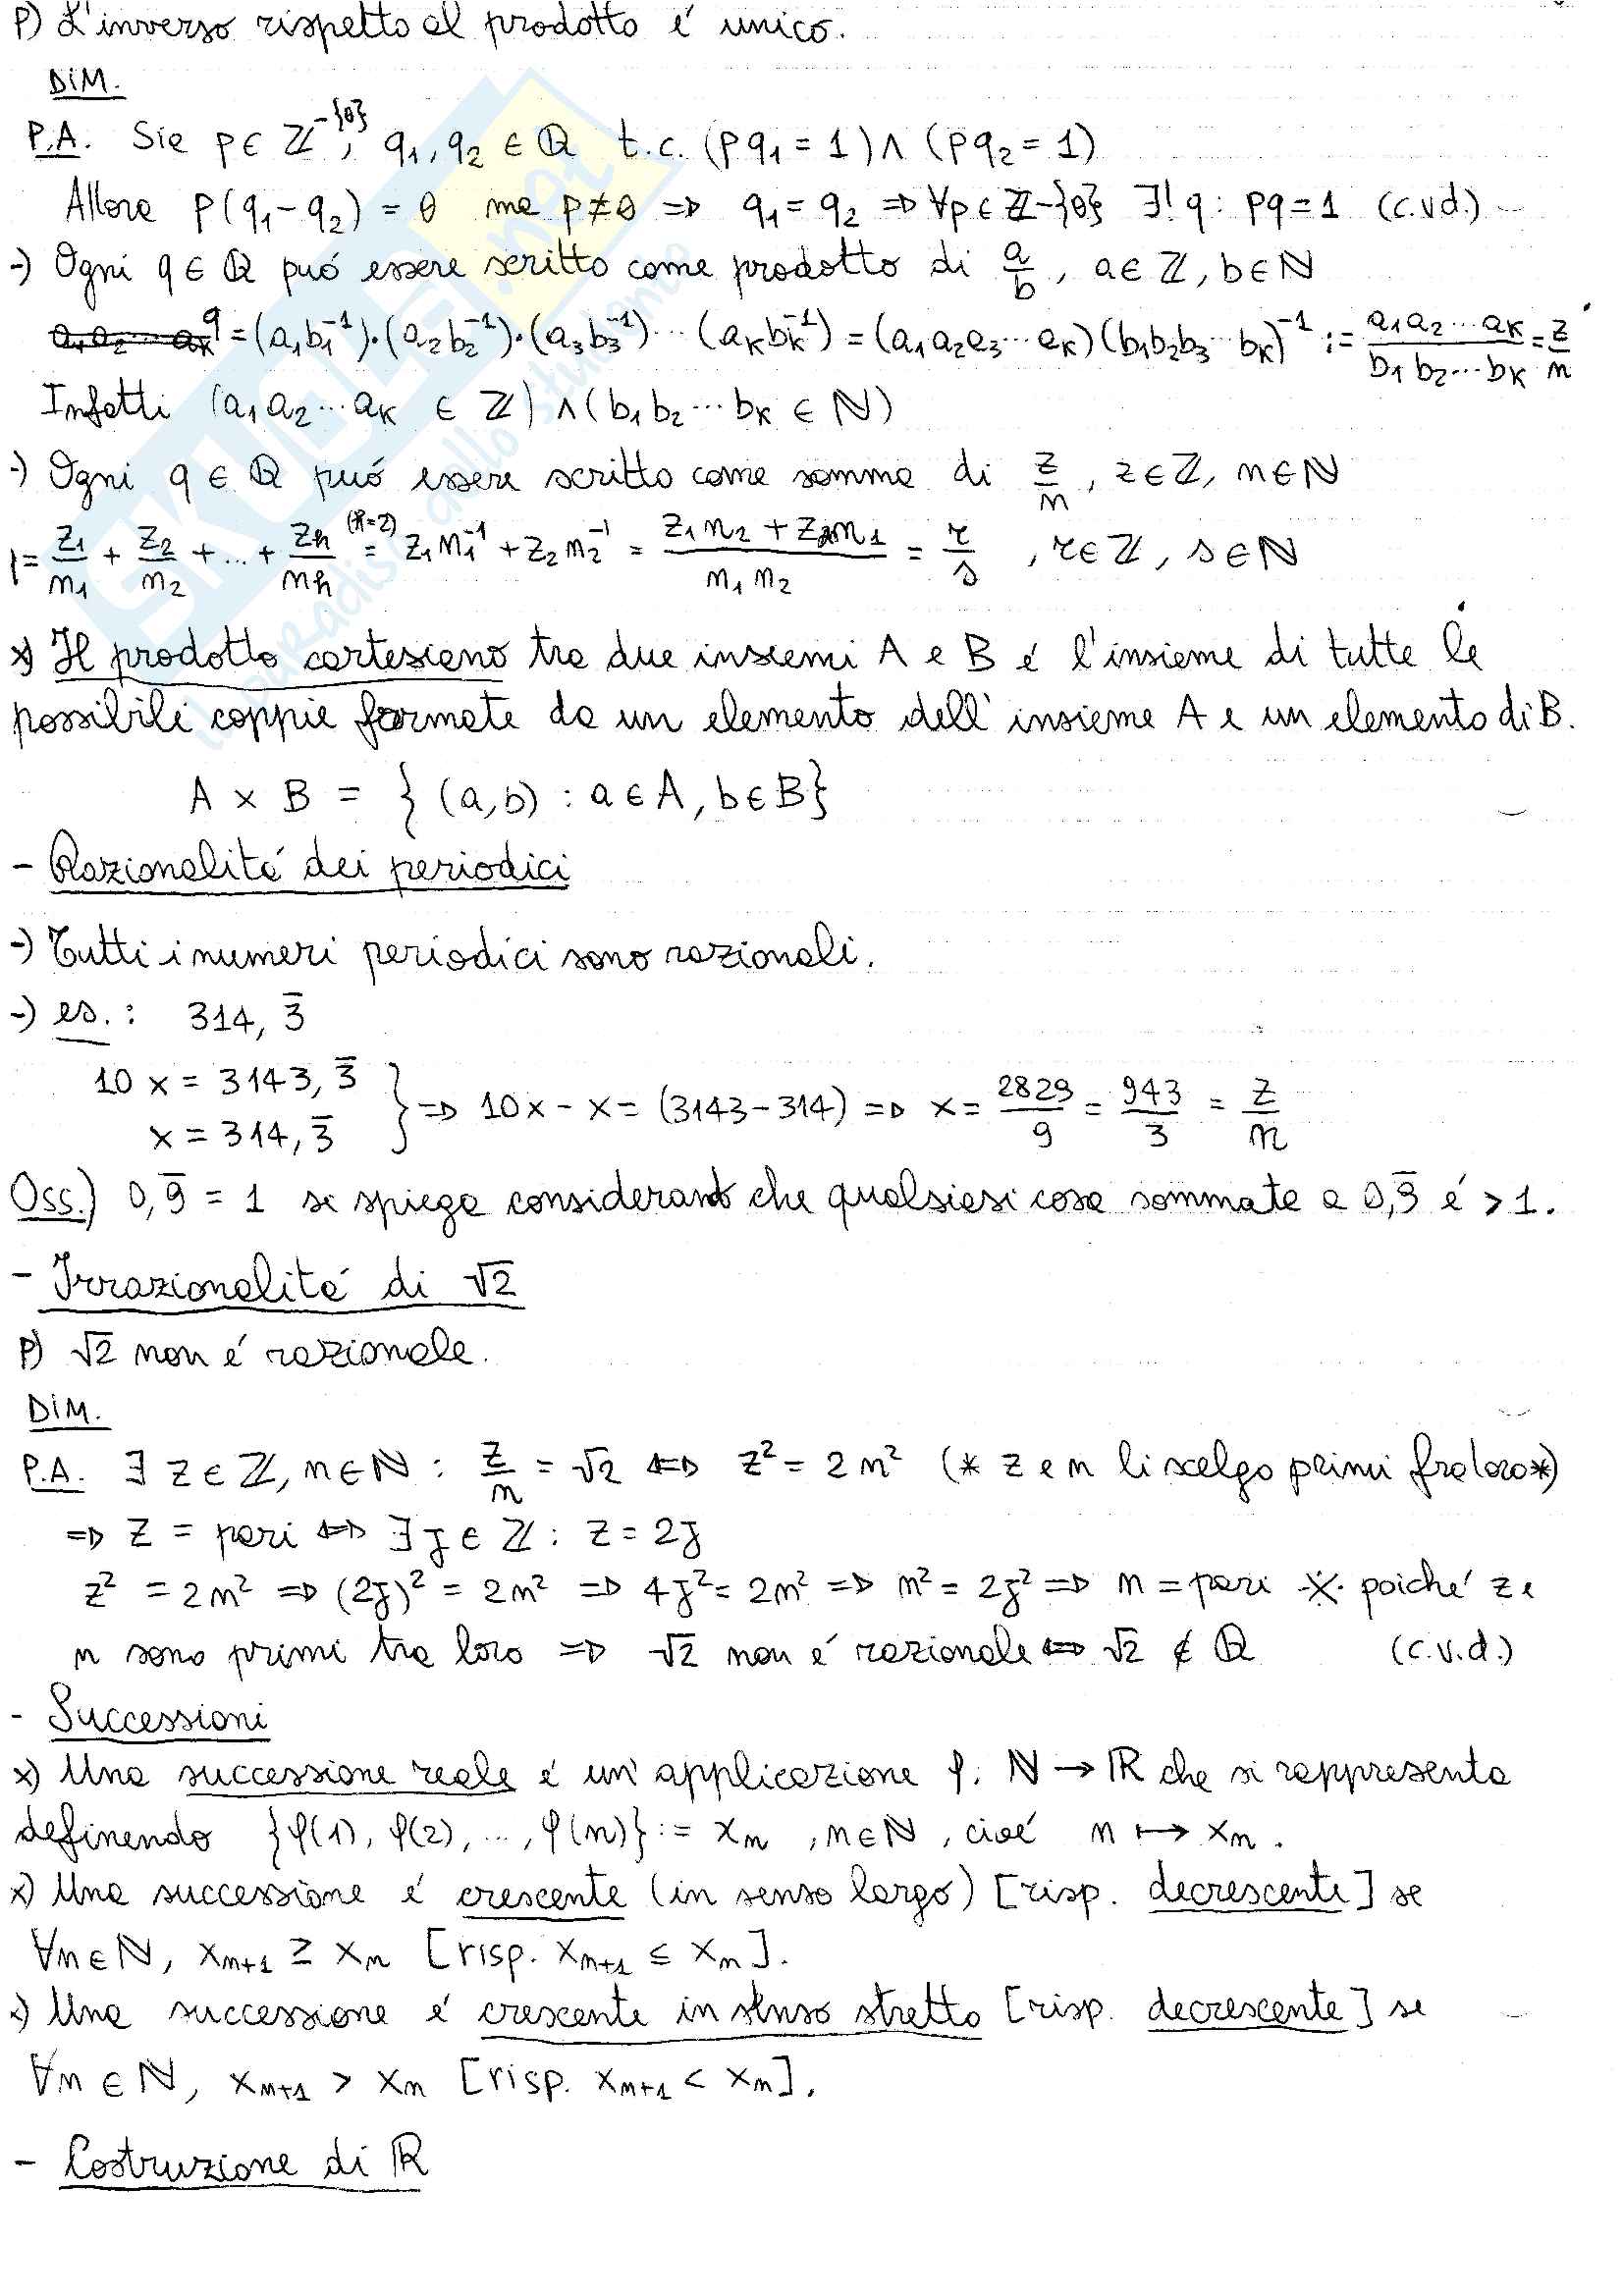 P) L'inverso rispetto al prodotto é unico.
DIM.
P.A. Sia p∈ℤ-{0}, q₁,q₂ ∈ ℚ t.c. (pq₁=1)∧(pq₂=1)
Allora p(q₁-q₂) = 0 ma p≠0 ⇒ q₁=q₂ ⇒ ∀p∈ℤ-{0} ∃! q : pq=1 (c.v.d.)
-) Ogni q∈ℚ puó essere scritto come prodotto di a/b, a∈ℤ, b∈ℕ
q=(a₁b₁⁻¹)·(a₂b₂⁻¹)·(a₃b₃⁻¹)···(aₖbₖ⁻¹)=(a₁a₂a₃···aₖ)(b₁b₂b₃···bₖ)⁻¹ := a₁a₂···aₖ/b₁b₂···bₖ = z/n
Infatti (a₁a₂···aₖ ∈ ℤ)∧(b₁b₂···bₖ∈ℕ)
-) Ogni q∈ℚ puó essere scritto come somma di z/n, z∈ℤ, n∈ℕ
= z₁/n₁ + z₂/n₂ + ... + z_h/n_h (h=2)= z₁n₁⁻¹ + z₂n₂⁻¹ = z₁n₂+z₂n₁/n₁n₂ = r/s , r∈ℤ, s∈ℕ
x) Il prodotto cartesiano tra due insiemi A e B é l'insieme di tutte le
possibili coppie formate da un elemento dell'insieme A e un elemento di B.
A × B = {(a,b) : a∈A, b∈B}
- Razionalitá dei periodici
-) Tutti i numeri periodici sono razionali.
-) es.: 314,3̅
10x = 3143,3̅
x = 314,3̅ } ⇒ 10x - x = (3143-314) ⇒ x = 2829/9 = 943/3 = z/n
Oss.) 0,9̅ = 1 si spiega considerando che qualsiasi cosa sommata a 0,9̅ é >1.
- Irrazionalitá di √2
P) √2 non é razionale.
DIM.
P.A. ∃ z∈ℤ, n∈ℕ : z/n = √2 ⇔ z² = 2n² (* z e n li scelgo primi fra loro*)
⇒ z = pari ⇔ ∃ j∈ℤ : z=2j
z² = 2n² ⇒ (2j)² = 2n² ⇒ 4j²=2n² ⇒ n²=2j² ⇒ n=pari ※ poiché z e
n sono primi tra loro ⇒ √2 non é razionale ⇔ √2 ∉ ℚ (c.v.d.)
- Successioni
x) Una successione reale é un'applicazione φ: ℕ → ℝ che si rappresenta
definendo {φ(1), φ(2), ..., φ(n)} := xₙ , n∈ℕ, cioé n ↦ xₙ.
x) Una successione é crescente (in senso largo) [risp. decrescente] se
∀n∈ℕ, xₙ₊₁ ≥ xₙ [risp. xₙ₊₁ ≤ xₙ].
x) Una successione é crescente in senso stretto [risp. decrescente] se
∀n∈ℕ, xₙ₊₁ > xₙ [risp. xₙ₊₁ < xₙ].
- Costruzione di ℝ